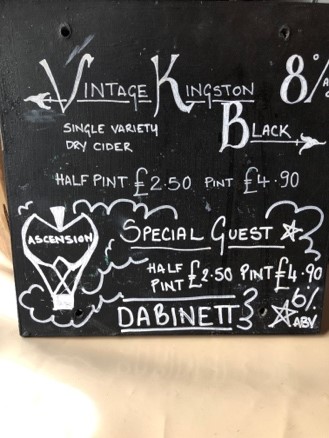 VINTAGE KINGSTON 8%
BLACK
SINGLE VARIETY
DRY CIDER
HALF PINT £2.50 PINT £4.90
ASCENSION
SPECIAL GUEST
HALF PINT £2.50 PINT £4.90
DABINETT
6%
ABV